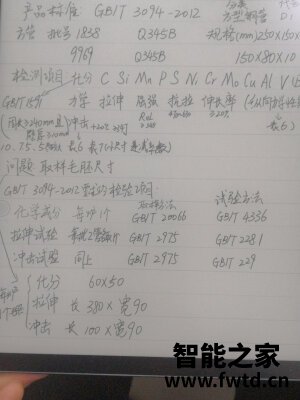 产品标准 GB/T 3094-2012
分类
方型钢管 D1
方管 批号 1838 Q345B 规格(mm) 250×150×
9969 Q345B 150×80×10
检测项目 化分 C Si Mn P S Ni Cr Mo Cu Al V
GB/T 1591 力学 拉伸 屈强 抗拉 伸长率
冲击 +20℃
10. 7.5. 5
问题 取样毛胚尺寸
GB/T 3094-2012 检验项目:
取样方法 试验方法
化学成分 每炉1个 GB/T 20066 GB/T 4336
拉伸试验 GB/T 2975 GB/T 228.1
冲击试验 同上 GB/T 2975 GB/T 229
化分 60×50
拉伸 长380×宽90
冲击 长100×宽90
智能之家
www.fwtd.cn